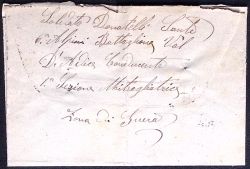 Soldato Donatelli Santo
6° Alpini Battaglione Val
D'Adige Conducente
1ª Sezione Mitragliatrice
Zona di Guerra